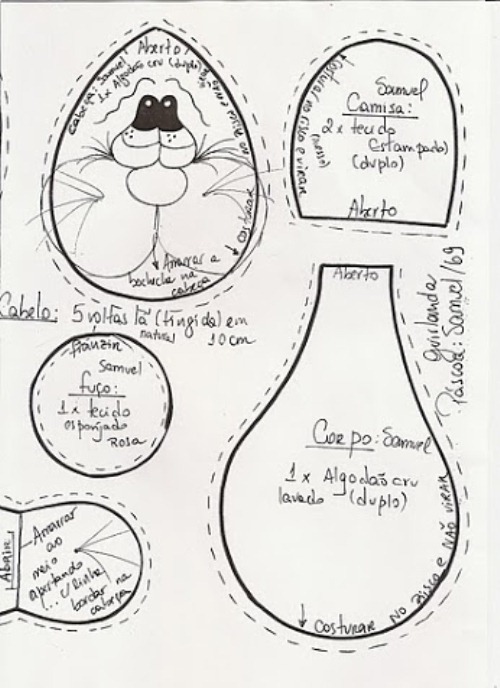 Aberto
Cabeça: Samuel
1x Algodão cru (duplo)
costurar no risco e virar
Amarrar a
bochecha na
cabeça
Samuel
Camisa:
2x tecido
Estampado
(duplo)
Costurar no risco e virar
(avesso)
Aberto
Cabelo: 5 voltas lã (tingida) em
natural 10cm
guirlanda
Páscoa: Samuel/69
franzir
Samuel
fuço:
1x tecido
esponjado
Rosa
Aberto
Corpo: Samuel
1x Algodão cru
lavado (duplo)
costurar no risco e NÃO VIRAR
Abrir
Amarrar
ao
meio
apertando
... c/linha
bordar na
cabeça